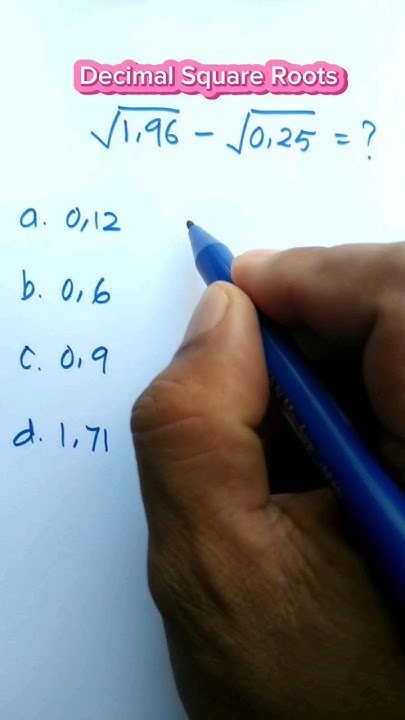 Decimal Square Roots
√1,96 - √0,25 = ?
a. 0,12
b. 0,6
c. 0,9
d. 1,71